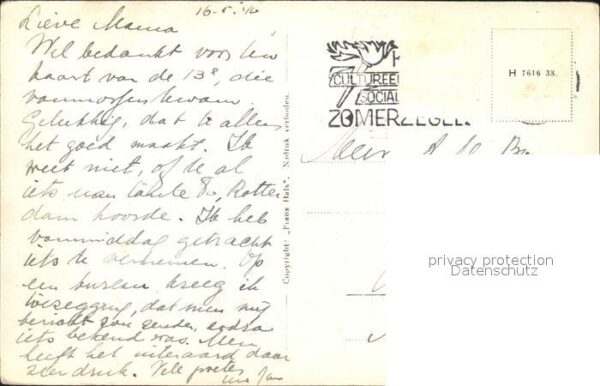 16-5-'40
Lieve Mama
Wel bedankt voor Uw
kaart van de 13e, die
vanmorgen kwam
Gelukkig, dat U alles
het goed maakt. Ik
weet niet, of U al
iets van tante Rotter
dam hoorde. Ik heb
vanmiddag getracht
iets te vernemen. Op
een bureau kreeg ik
toezegging, dat men mij
bericht zou zenden, zodra
iets bekend was. Men
heeft het uiteraard daar
zeer druk. Vele groeten
Uw Jan
Copyright: „Frans Hals". Nadruk verboden.
CULTUREE
SOCIAL
ZOMERZEGEL
H 7616 38.
privacy protection
Datenschutz